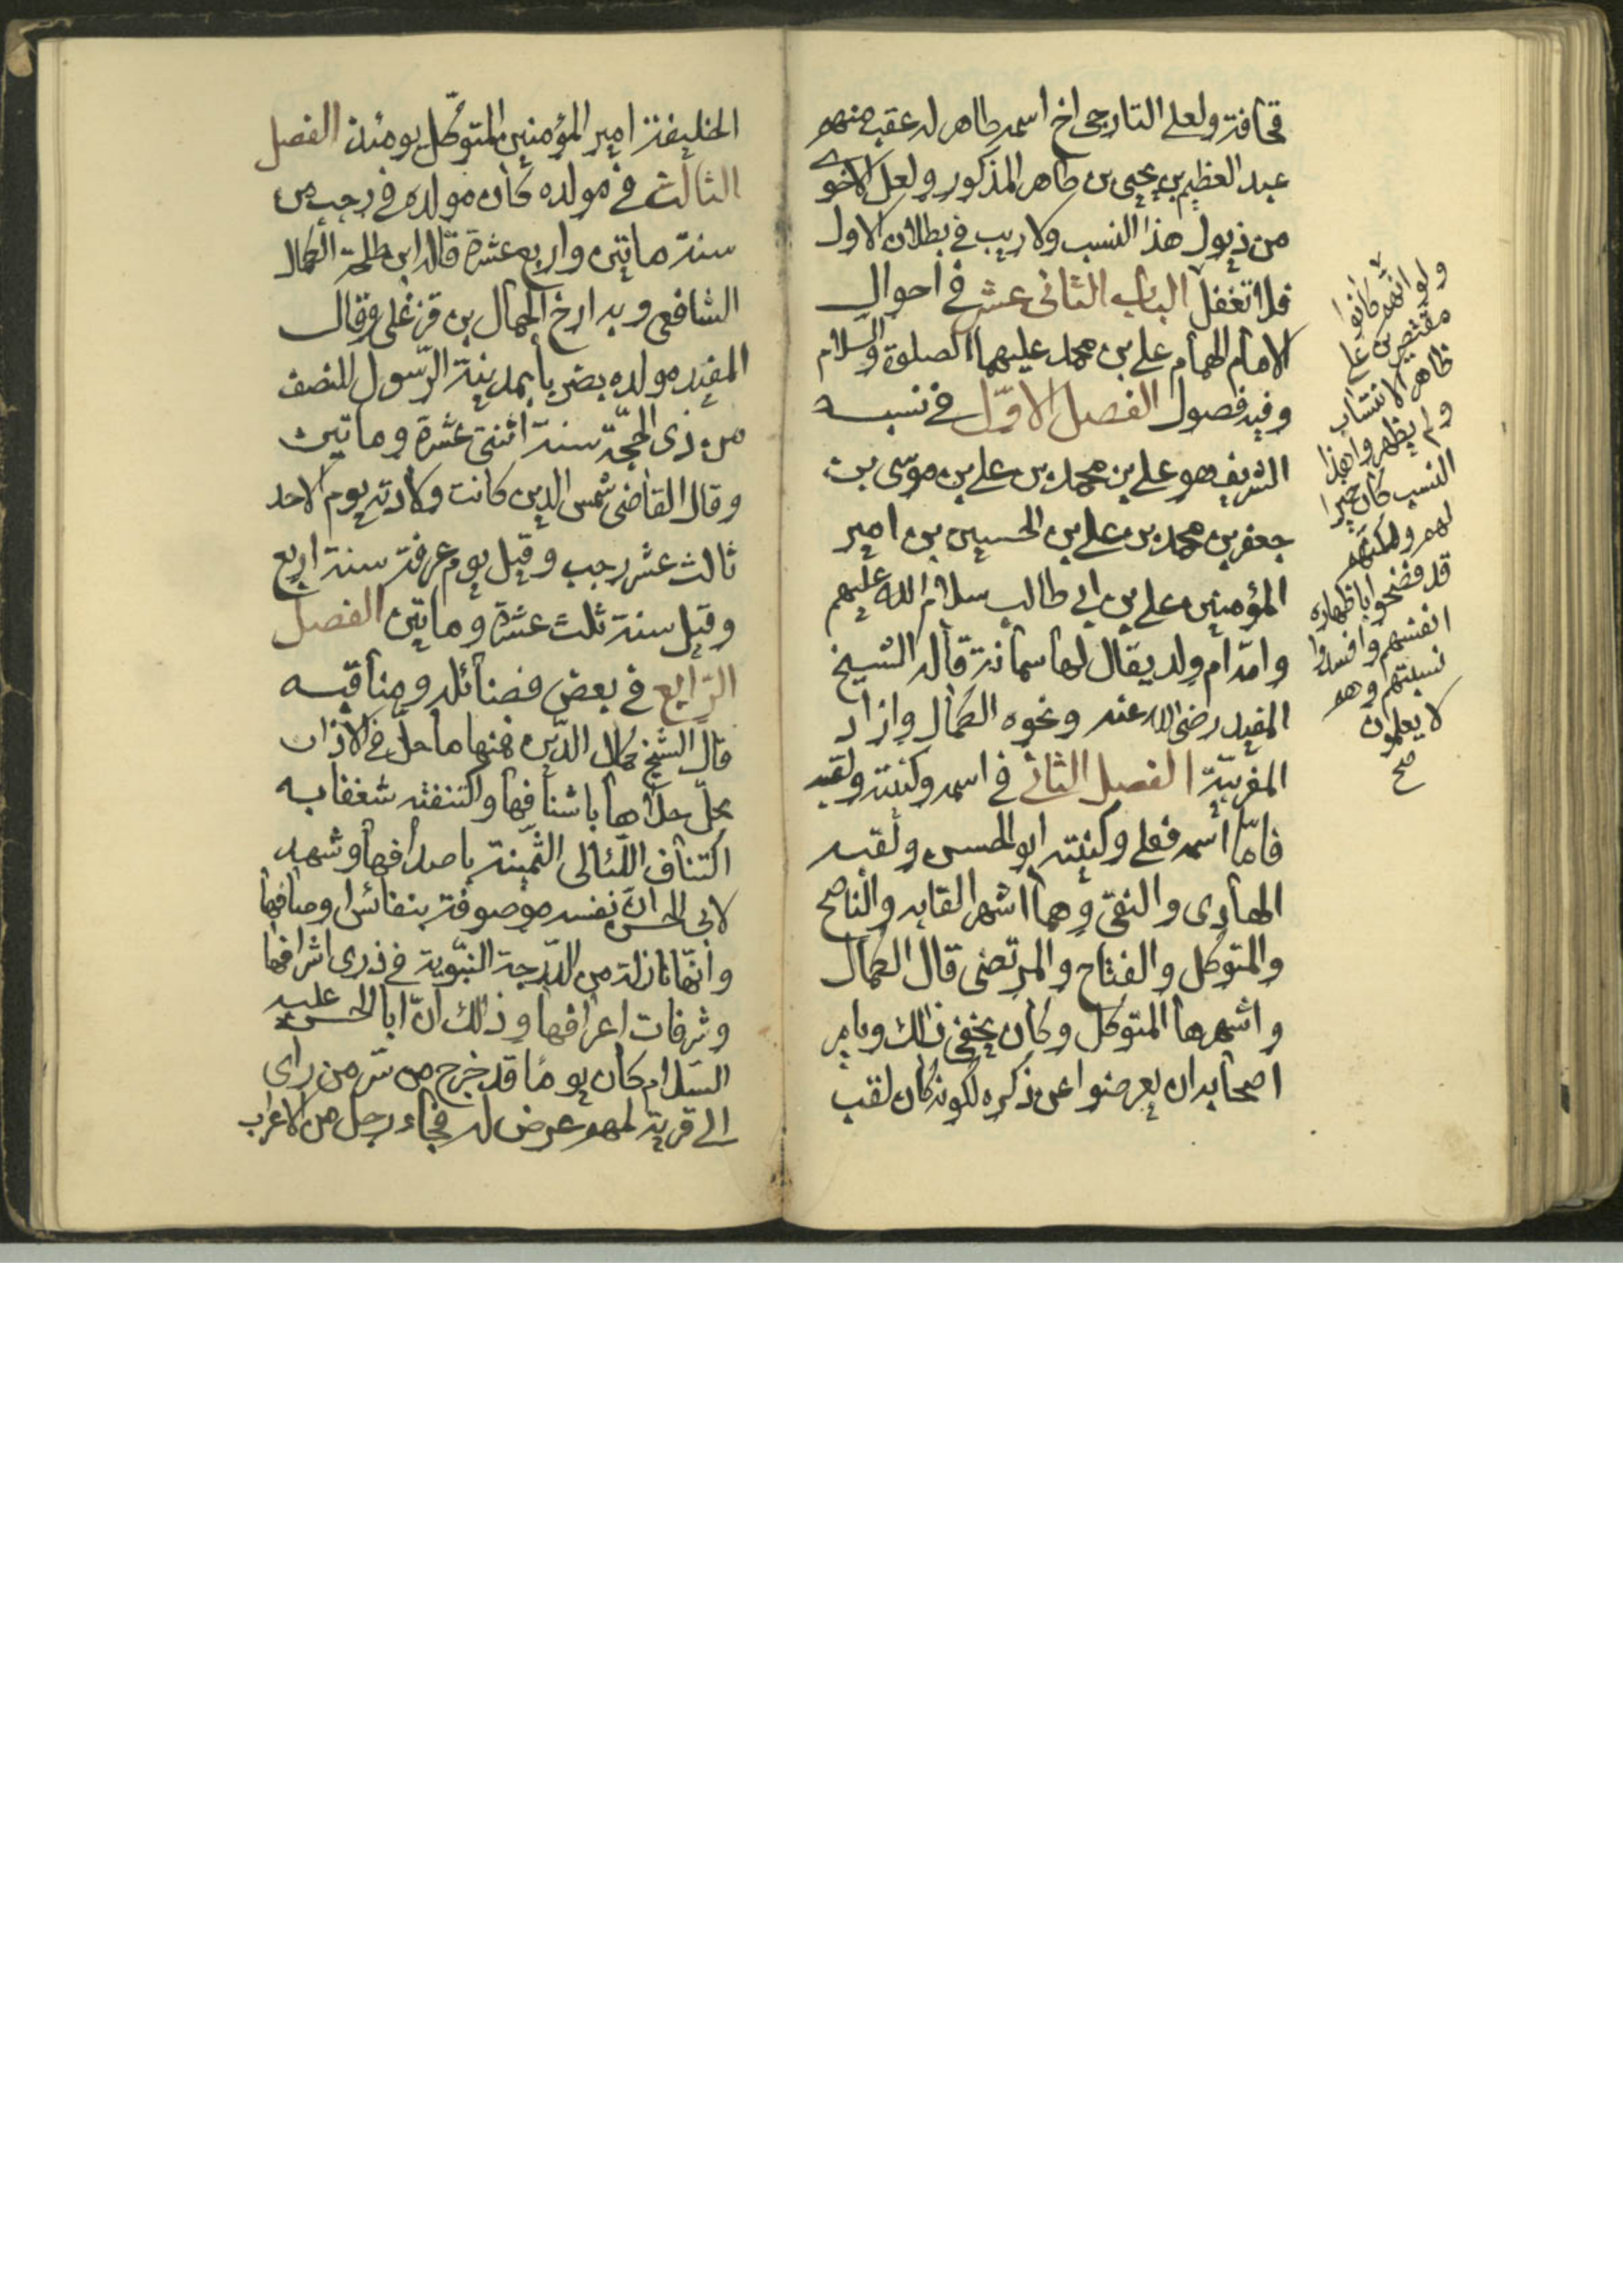 قحافة ولعلي التارجي اخ اسمه طاهر له عقب منهم
عبد العظيم بن يحيى بن طاهر المذكور ولعل الاخوى
من ذيول هذا النسب ولا ريب في بطلان الاول
فلا تغفل الباب الثاني عشر في احوال
الامام الهمام علي بن محمد عليهما الصلوة والسلام
وفيه فصول الفصل الاوّل في نسبه
الشريف هو علي بن محمد بن علي بن موسى بن
جعفر بن محمد بن علي بن الحسين بن امير
المؤمنين علي بن ابي طالب سلام الله عليهم
وامّه ام ولد يقال لها سمانة قاله الشيخ
المفيد رضي الله عنه ونحوه الكمال وازاد
المغربيّة الفصل الثاني في اسمه وكنيته ولقبه
فامّا اسمه فعلي وكنيته ابو الحسن ولقبه
الهادي والنقي وهما اشهر القابه والناصح
والمتوكل والفتاح والمرتضى قال الكمال
واشهرها المتوكل وكان يخفى ذالك ويامر
اصحابه ان يعرضوا عن ذكره لكونه كان لقب
ولو انهم كانوا
مقتصرين على
ظاهر الانتساب
ولم يظهروا هذا
النسب كان خيرا
لهم ولكنهم
قد فضحوا باظهاره
انفسهم وافسدوا
نسبتهم وهم
لا يعلمون
صح
الخليفة امير المؤمنين المتوكّل يومئذ الفصل
الثالث في مولده كان مولده في رجب من
سنة ماتين واربع عشرة قاله ابن طلحة الكمال
الشافعي وبه ارخ الجمال بن قزغلي وقال
المفيد مولده بصريا بمدينة الرّسول للنصف
من ذى الحجّة سنة اثنتي عشرة وماتين
وقال القاضي شمس الدين كانت ولادته يوم الاحد
ثالث عشر رجب وقيل يوم عرفة سنة اربع
وقيل سنة ثلث عشرة وماتين الفصل
الرّابع في بعض فضائله ومناقبه
قال الشيخ كمال الدّين فمنها ما حلّ في الاذان
محلّ حلاها باشنافها واكتنفته شغفا به
اكتناف اللّئالى الثّمينة باصدافها وشهد
لابي الحسن انّ نفسه موصوفة بنفائس اوصافها
وانّها نازلة من الدّرجة النّبويّة في ذرى اشرافها
وشرفات اعرافها وذالك انّ ابا الحسن عليه
السّلام كان يومًا قد خرج من سرّ من راى
الى قرية لمهم عرض له فجاء رجل من الاعراب